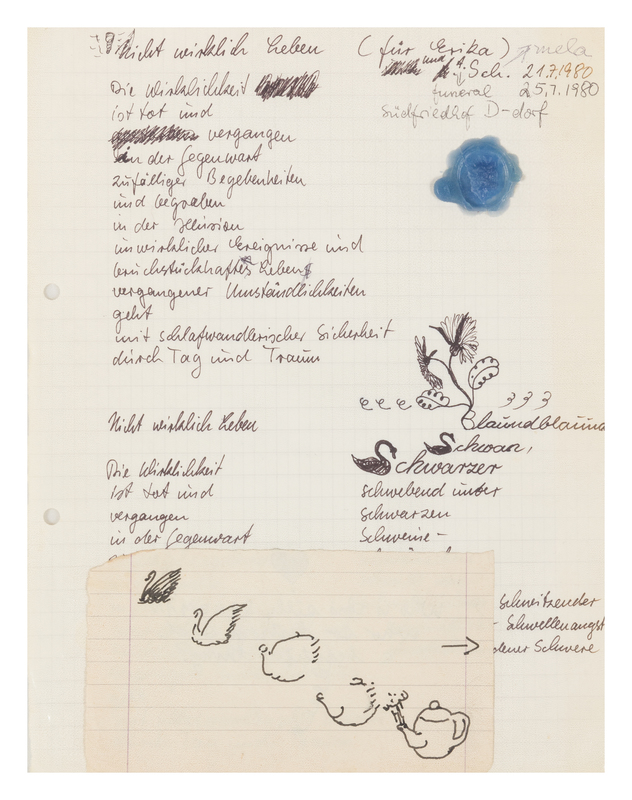 Nicht wirklich Leben (für Erika)
und
Sch. 21.7.1980
funeral 25.7.1980
Südfriedhof D-dorf
Die Wirklichkeit
ist tot und
vergangen
in der Gegenwart
zufälliger Begebenheiten
und begraben
in der Illusion
unwirklicher Ereignisse und
bruchstückhaftes Leben
vergangener Umständlichkeiten
geht
mit schlafwandlerischer Sicherheit
durch Tag und Traum
Nicht wirklich Leben
Die Wirklichkeit
ist tot und
vergangen
in der Gegenwart
Blaundblaund
Schwan,
Schwarzer
schwebend unter
schwarzen
Schweine-
schwitzender
- Schwellenangst
dener Schwere